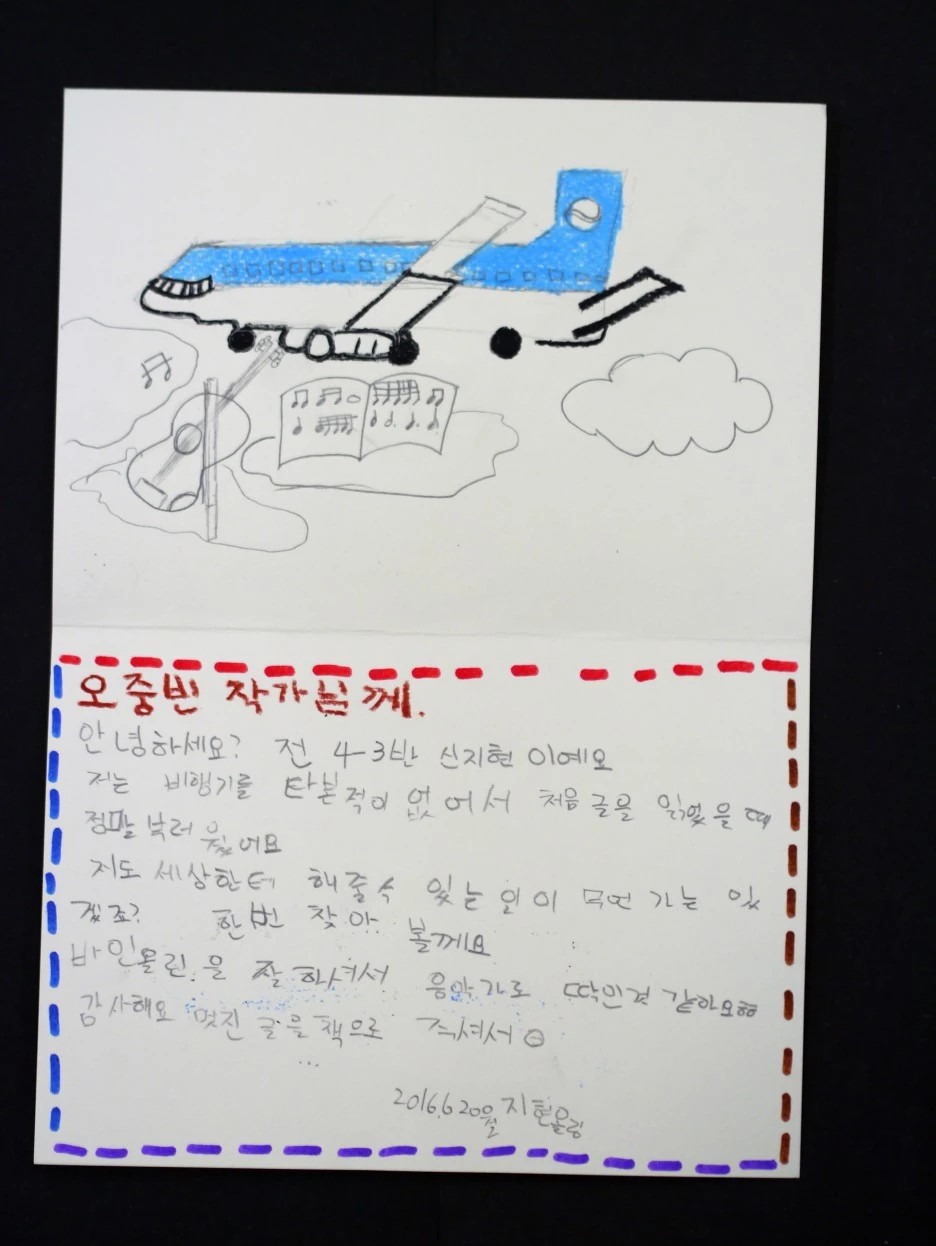 오중빈 작가님께.
안녕하세요? 전 4-3반 신지현이예요
저는 비행기를 타본적이 없어서 처음글을 읽었을때
정말 부러웠어요
저도 세상한테 해줄수 있는 일이 무언가는 있
겠죠? 한번 찾아 볼께요
바인올린을 잘하셔서 음악가로 딱인것 같아요
감사해요 멋진 글을 책으로 주셔서
2016.6 20월 지현올림